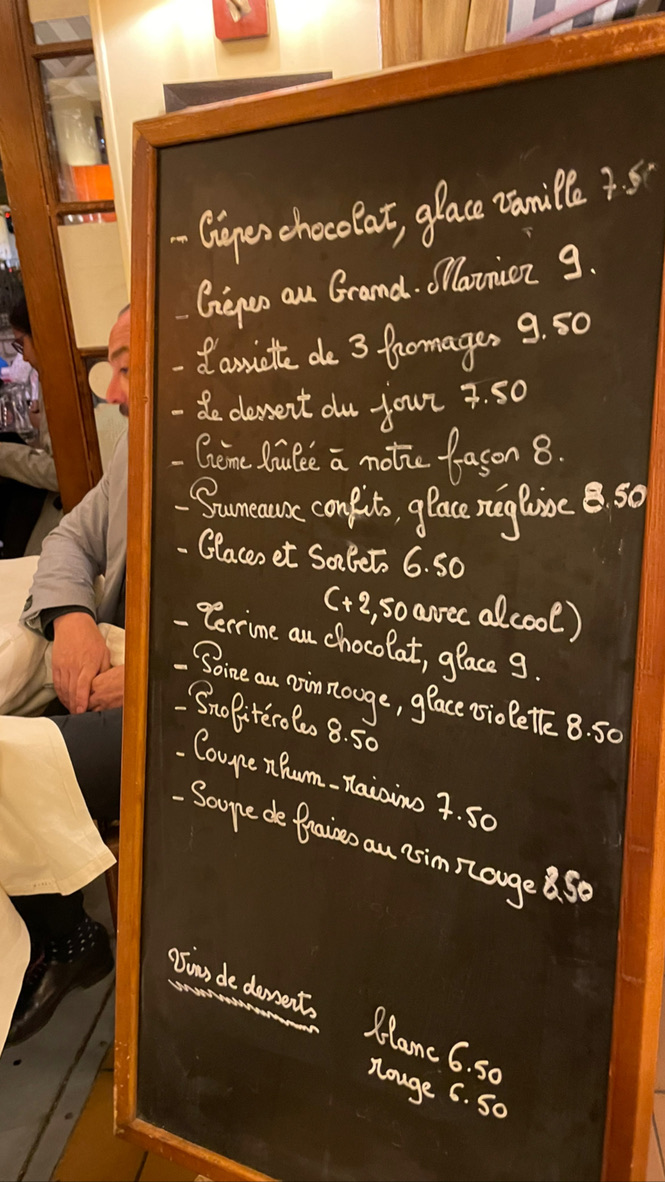 - Crêpes chocolat, glace vanille 7.50
- Crêpes au Grand-Marnier 9.
- L'assiette de 3 fromages 9.50
- Le dessert du jour 7.50
- Crème brûlée à notre façon 8.
- Pruneaux confits, glace réglisse 8.50
- Glaces et Sorbets 6.50
(+2,50 avec alcool)
- Terrine au chocolat, glace 9.
- Poire au vin rouge, glace violette 8.50
- Profitéroles 8.50
- Coupe rhum-raisins 7.50
- Soupe de fraises au vin rouge 8.50
Vins de desserts
blanc 6.50
rouge 6.50